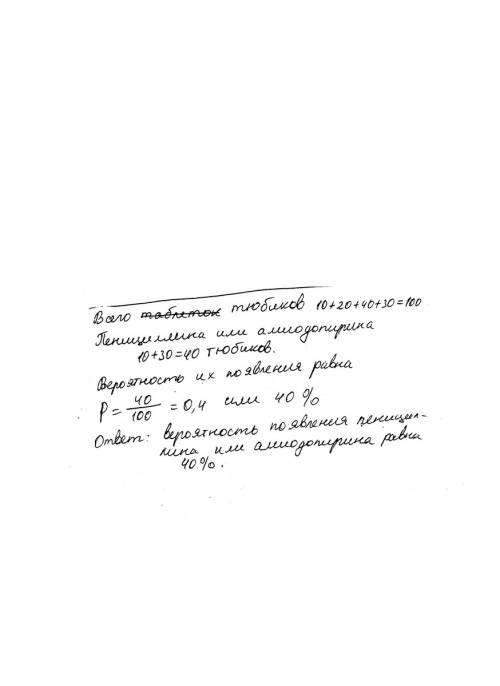 Всего таблеток тюбиков 10+20+40+30=100
Пенициллина или амидопирина
10+30=40 тюбиков.
Вероятность их появления равна
P = 40/100 = 0,4 или 40%
Ответ: вероятность появления пеницил-
лина или амидопирина равна
40%.